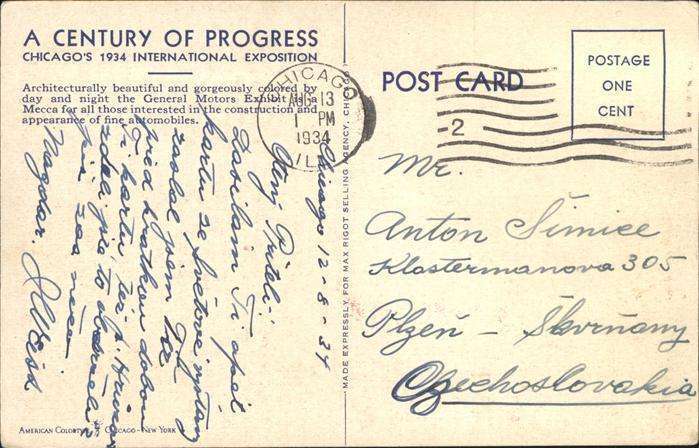 A CENTURY OF PROGRESS
CHICAGO'S 1934 INTERNATIONAL EXPOSITION
Architecturally beautiful and gorgeously colored by
day and night the General Motors Exhibit is a
Mecca for all those interested in the construction and
appearance of fine automobiles.
CHICAGO
AUG 13
PM
1934
ILL
2
POST CARD
POSTAGE
ONE
CENT
Chicago 12-8-34
Ctěný Příteli
Zasílám Ti opět
kartu ze Světové výstavy
zaslal jsem Ti
před krátkou dobou
Ti kartu též
zdali jste to
Nazdar.
MADE EXPRESSLY FOR MAX RIGOT SELLING AGENCY, CHICAGO
Mr.
Anton Šimice
Klostermanova 305
Plzeň – Škvrňany
Czechoslovakia
AMERICAN CHICAGO-NEW YORK